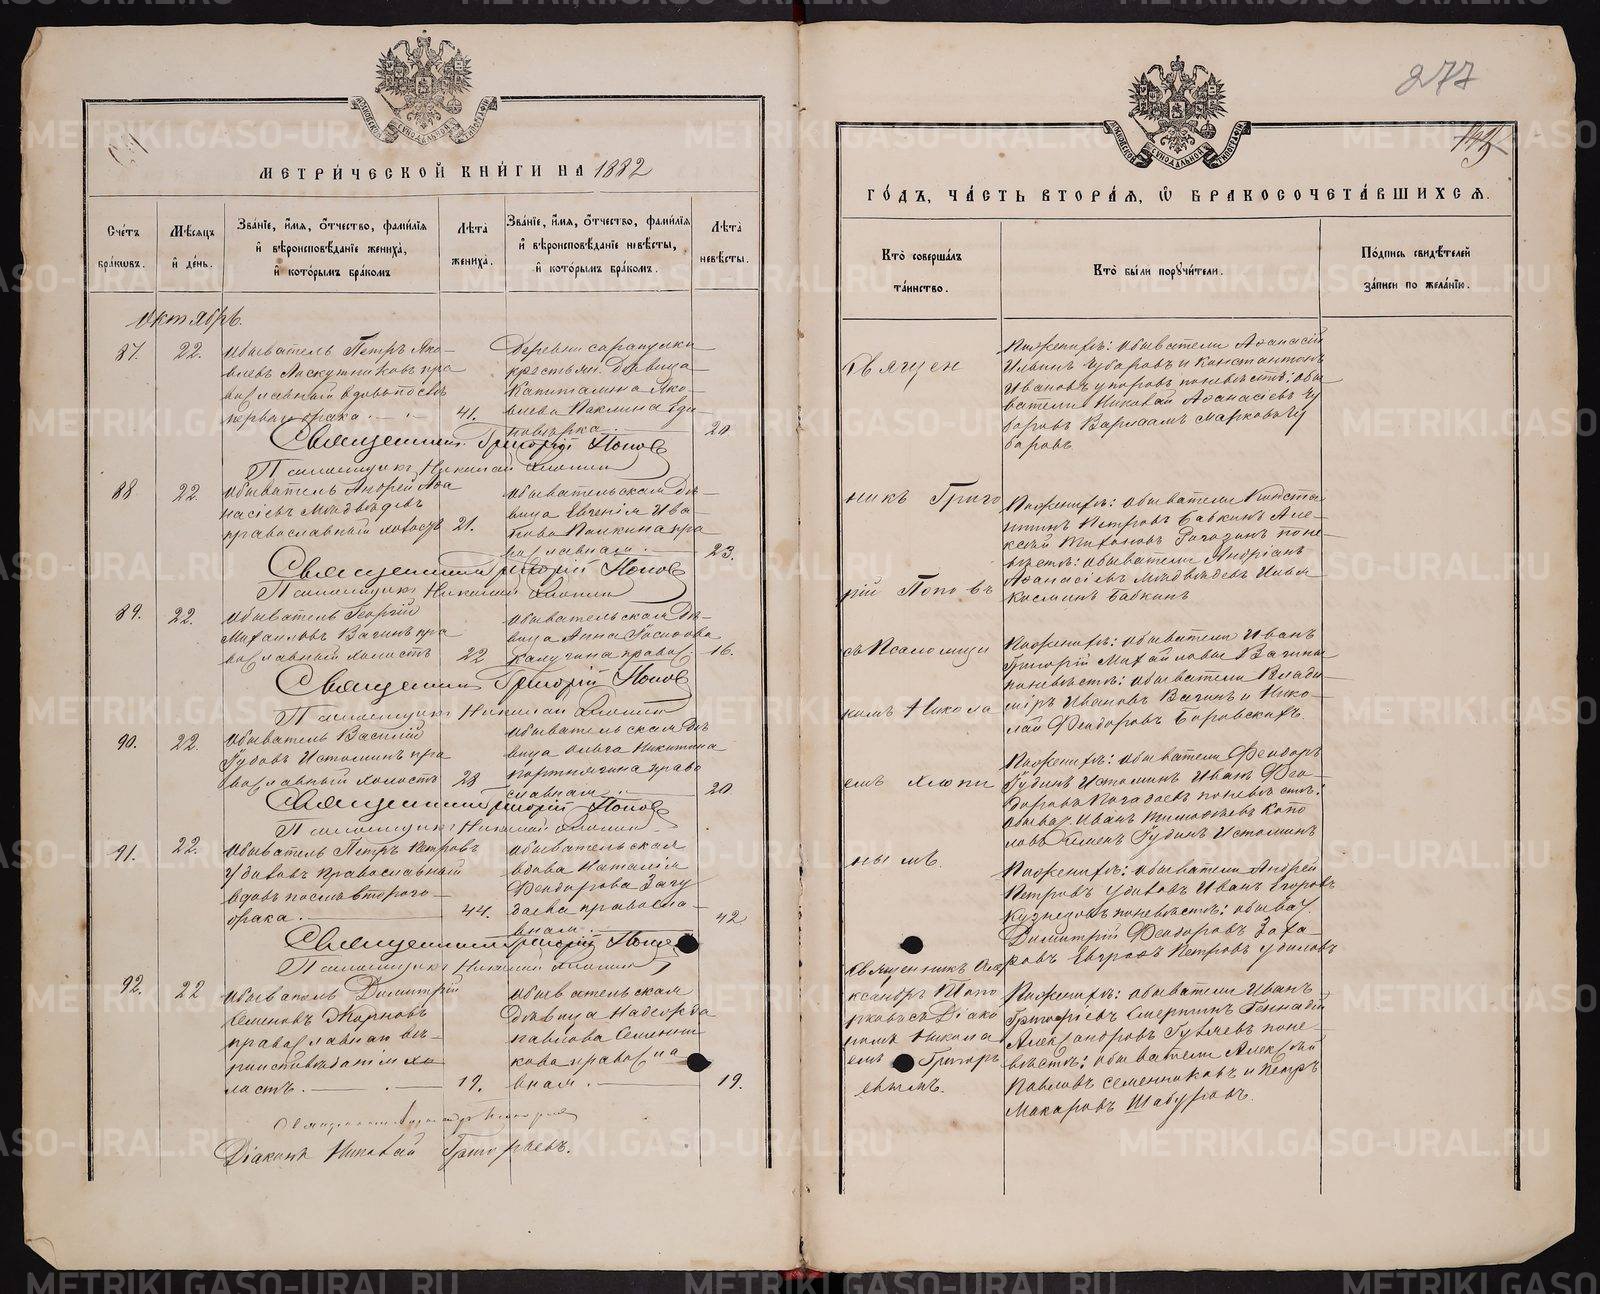 МЕТРИ́ЧЕСКОЙ КНИ́ГИ НА 1882
Сче́тъ бра́кѡвъ.
Мѣ́сѧцъ и҆ де́нь.
Зва́нїе, и҆́мѧ, ѻ҆́тчество, фами́лїѧ и҆ вѣроисповѣ́данїе жениха̀, и҆ кото́рымъ бра́комъ
Лѣ́та жениха̀.
Зва́нїе, и҆́мѧ, ѻ҆́тчество, фами́лїѧ и҆ вѣроисповѣ́данїе невѣ́сты, и҆ кото́рымъ бра́комъ.
Лѣ́та невѣ́сты.
Октябрь.
87.
22.
Обыватель Петръ Яко-
влевъ Лоскутниковъ пра
вославный вдовъ послѣ
перваго брака
41.
Деревни
крестьян. Дѣвица
Капиталина Яко-
влева Паклина Еди
новѣрка.
20
Священникъ Григорій Поповъ
Псаломщикъ Николай Хлопинъ
88
22.
Обыватель Андрей Аѳа
насіевъ Медвѣдевъ
православный холостъ
21.
Обывательская дѣ-
вица Евгенія Ива-
нова Палкина пра
вославная.
23.
Священникъ Григорій Поповъ
Псаломщикъ Николай Хлопинъ
89.
22.
Обыватель Георгій
Михаиловъ Вагинъ пра
вославный холостъ
22
Обывательская дѣ-
вица Анна
Калугина правос.
16.
Священникъ Григорій Поповъ
Псаломщикъ Николай Хлопинъ
90.
22.
Обыватель Василій
Гудовъ Истоминъ пра
вославный холостъ
28
Обывательская дѣ
вица Ольга Никитина
Портнягина право
славная.
20
Священникъ Григорій Поповъ
Псаломщикъ Николай Хлопинъ
91.
22.
Обыватель Петръ Петровъ
православный
вдовъ послѣ второго
брака.
44.
Обывательская
вдова Наталія
Ѳеодорова Загу
даева правосла-
вная.
42
Священникъ Григорій Поповъ
Псаломщикъ Николай Хлопинъ
92.
22
Обыватель Димитрій
Семеновъ Жерновъ
православнаго вѣ-
роисповѣданія хо-
лостъ.
19.
Обывательская
дѣвица Надежда
Павлова Семенни
кова правосла
вная.
19.
Діаконъ Николай Григорьевъ.
277
145
ГО́ДЪ, ЧА́СТЬ ВТОРА́Ѧ, Ѡ҆ БРАКОСОЧЕТА́ВШИХСѦ.
Кто̀ соверша́лъ та́инство.
Кто̀ бы́ли порꙋчи́тели.
По́дпись свидѣ́телей за́писи по жела́нїю.
Священ
никъ Григо
рій Поповъ
съ Псаломщи
комъ Никола
емъ Хлопи
нымъ.
Священникъ Але
ксандръ Топо
рковъ съ Діако
номъ Никола
емъ Григорь
евымъ.
По женихѣ: обыватели Аѳанасій
Ильинъ Чубаровъ и Константинъ
Ивановъ по невѣстѣ: обы
ватели Николай Аѳанасіевъ Чу
баровъ Варлаамъ Марковъ Чу
баровъ
По женихѣ: обыватели Конста-
нтинъ Петровъ Бабкинъ Але-
ксѣй Тихоновъ Рогозинъ по не-
вѣстѣ: обыватели Андріанъ
Аѳанасіевъ Медвѣдевъ Иванъ
Косминъ Бабкинъ
По женихѣ: обыватели Иванъ
Григорій Михайловы Вагины
по невѣстѣ: обыватели Влади-
міръ Ивановъ Вагинъ и Нико-
лай Ѳеодоровъ Боровскихъ.
По женихѣ: обыватели Ѳеодоръ
Гудинъ Истоминъ Иванъ Ѳео-
доровъ по невѣстѣ:
обыват. Иванъ Тимоѳеевъ Копо
ловъ Симеонъ Гудинъ Истоминъ
По женихѣ: обыватели Андрей
Петровъ Иванъ Егоровъ
Кузнецовъ по невѣстѣ: обыват.
Димитрій Ѳеодоровъ Заха-
ровъ Евграфъ Петровъ
По женихѣ: обыватели Иванъ
Григоріевъ Смертинъ Геннадій
Александровъ Гуляевъ по не-
вѣстѣ: обыватели Алексѣй
Павловъ Семенниковъ и Петръ
Макаровъ Шабуровъ.
METRIKI.GASO-URAL.RU